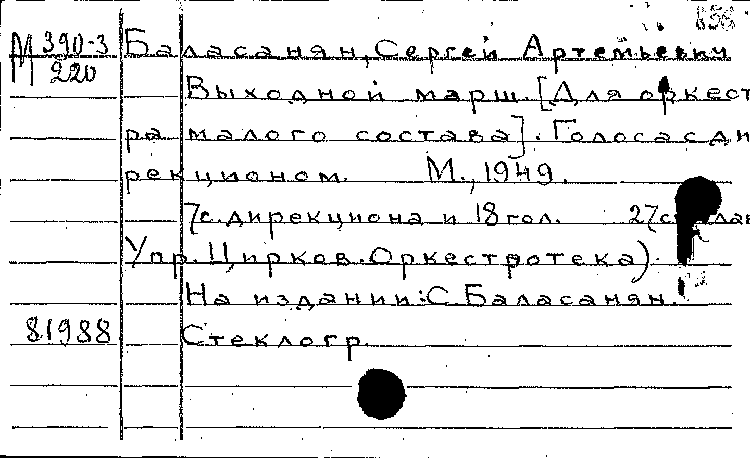 М 390-3
220
Баласанян, Сергей Артемьевич
Выходной марш. [Для оркест
ра малого состава]. Голоса с ди
рекционом. М., 1949.
7с. дирекциона и 18 гол. 27с
Упр. Цирков. Оркестротека).
На издании: С. Баласанян.
81988 Стеклогр.